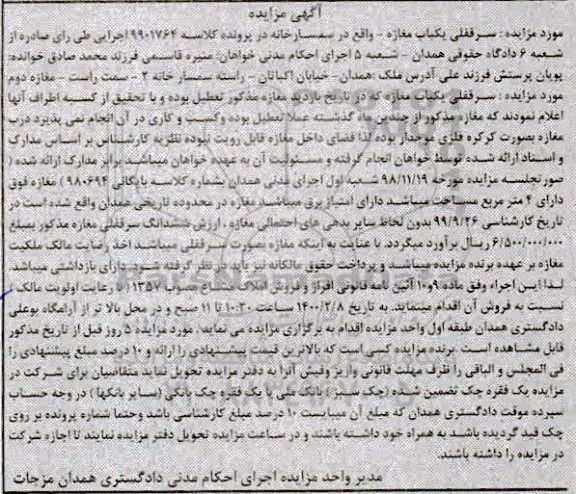 آگهی مزایده
مورد مزایده : سرقفلی یکباب مغازه - واقع در سمسارخانه در پرونده کلاسه ۹۹۰۱۷۶۴ اجرایی طی رای صادره از
شعبه ۶ دادگاه حقوقی همدان - شعبه ۵ اجرای احکام مدنی خواهان: منیره قاسمی فرزند محمد صادق خوانده:
پویان پرستش فرزند علی آدرس ملک :همدان- خیابان اکباتان - راسته سمسار خانه ۲ - سمت راست - مغازه دوم
مورد مزایده : سرقفلی یکباب مغازه که در تاریخ بازدید مغازه مذکور تعطیل بوده و با تحقیق از کسبه اطراف آنها
اعلام نمودند که مغازه مذکور از چندین ماه گذشته عملا تعطیل بوده وکسب و کاری در آن انجام نمی پذیرد درب
مغازه بصورت کرکره فلزی موجدار بوده لذا فضای داخل مغازه قابل رویت نبوده نظریه کارشناس بر اساس مدارک
و اسناد ارائه شده توسط خواهان انجام گرفته و مسئولیت آن به عهده خواهان میباشد برابر مدارک ارائه شده (
صورتجلسه مزایده مورخه ۹۸/۱۱/۱۹ شعبه اول اجرای مدنی همدان بشماره کلاسه بایگانی ۹۸۰۶۹۴ ) مغازه فوق
دارای ۴ متر مربع مساحت میباشد دارای امتیاز برق میباشد مغازه در محدوده تاریخی همدان واقع شده است در
تاریخ کارشناسی ۹۹/۹/۲۶ بدون لحاظ سایر بدهی های احتمالی مغازه ، ارزش ششدانگ سرقفلی مغازه مذکور بمبلغ
۶/۵۰۰/۰۰۰/۰۰۰ ریال برآورد میگردد. با عنایت به اینکه مغازه بصورت سرقفلی میباشد اخذ رضایت مالک ملکیت
مغازه بر عهده برنده مزایده میباشد و پرداخت حقوق مالکانه نیز باید در نظر گرفته شود. دارای بازداشتی میباشد.
لذا این اجراء وفق ماده ۹و۱۰ آئین نامه قانونی افراز و فروش املاک مشاع مصوب ۱۳۵۷ ( با رعایت اولویت مالک )
نسبت به فروش آن اقدام مینماید. به تاریخ ۱۴۰۰/۲/۸ ساعت ۱۰:۳۰ تا ۱۱ صبح و در محل بالا تر از آرامگاه بوعلی
دادگستری همدان طبقه اول واحد مزایده اقدام به برگزاری مزایده می نماید، مورد مزایده ۵ روز قبل از تاریخ مذکور
قابل مشاهده است .برنده مزایده کسی است که بالاترین قیمت پیشنهادی را ارائه و ۱۰ درصد مبلغ پیشنهادی را
فی المجلس و الباقی را ظرف مهلت قانونی واریز وفیش آنرا به دفتر مزایده تحویل نماید متقاضیان برای شرکت در
مزایده یک فقره چک تضمین شده (چک سبز ) بانک ملی یا یک فقره چک بانکی (سایر بانکها ) در وجه حساب
سپرده موقت دادگستری همدان که مبلغ آن میبایست ۱۰ درصد مبلغ کارشناسی باشد وحتما شماره پرونده بر روی
چک قید گردیده باشد به همراه خود داشته باشند و در ساعت مزایده تحویل دفتر مزایده نمایند تا اجازه شرکت
در مزایده را داشته باشند.
مدیر واحد مزایده اجرای احکام مدنی دادگستری همدان مزجات